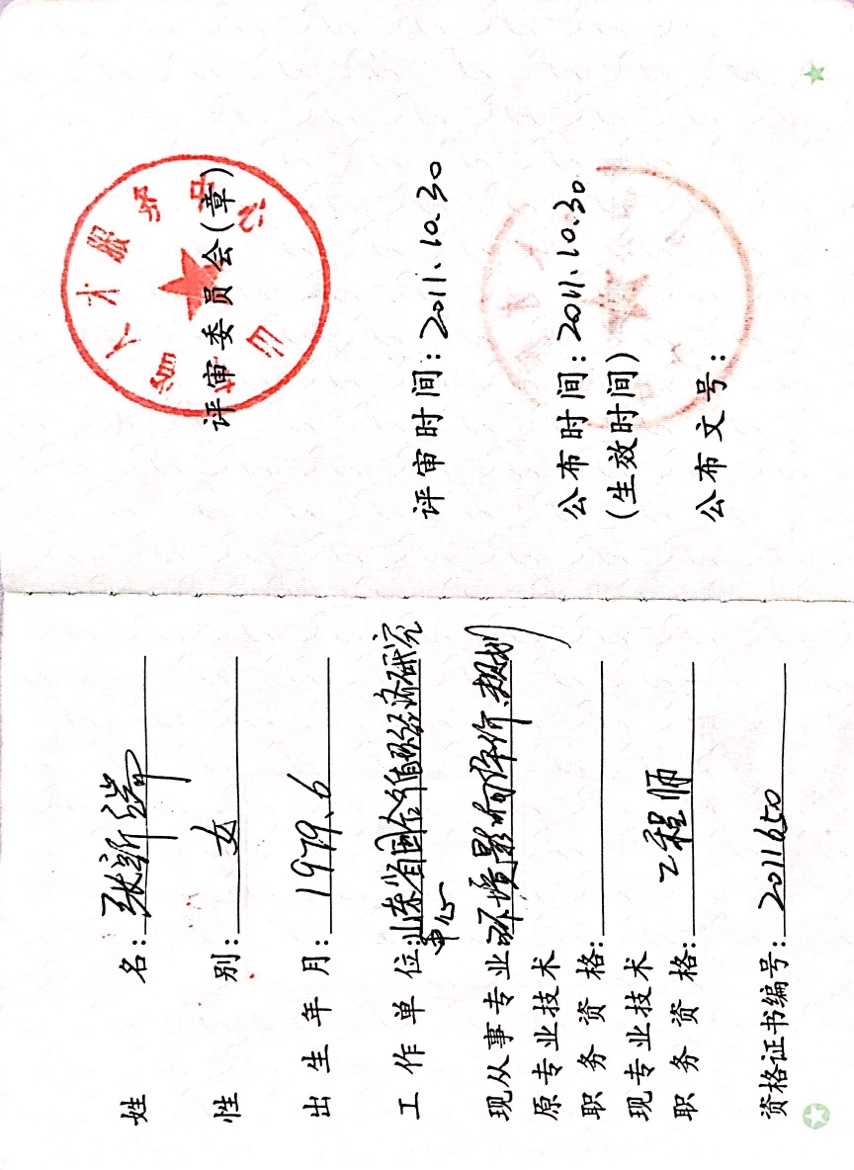 姓 名：张新华
性 别：女
出生年月：1979.6
工作单位：山东省国合循环经济研究
中心
现从事专业 环境影响评价、规划
原专业技术
职务资格：
现专业技术
职务资格：工程师
资格证书编号：2011650
人才服务
评审委员会(章)
评审时间：2011.10.30
公布时间：2011.10.30
(生效时间)
公布文号：